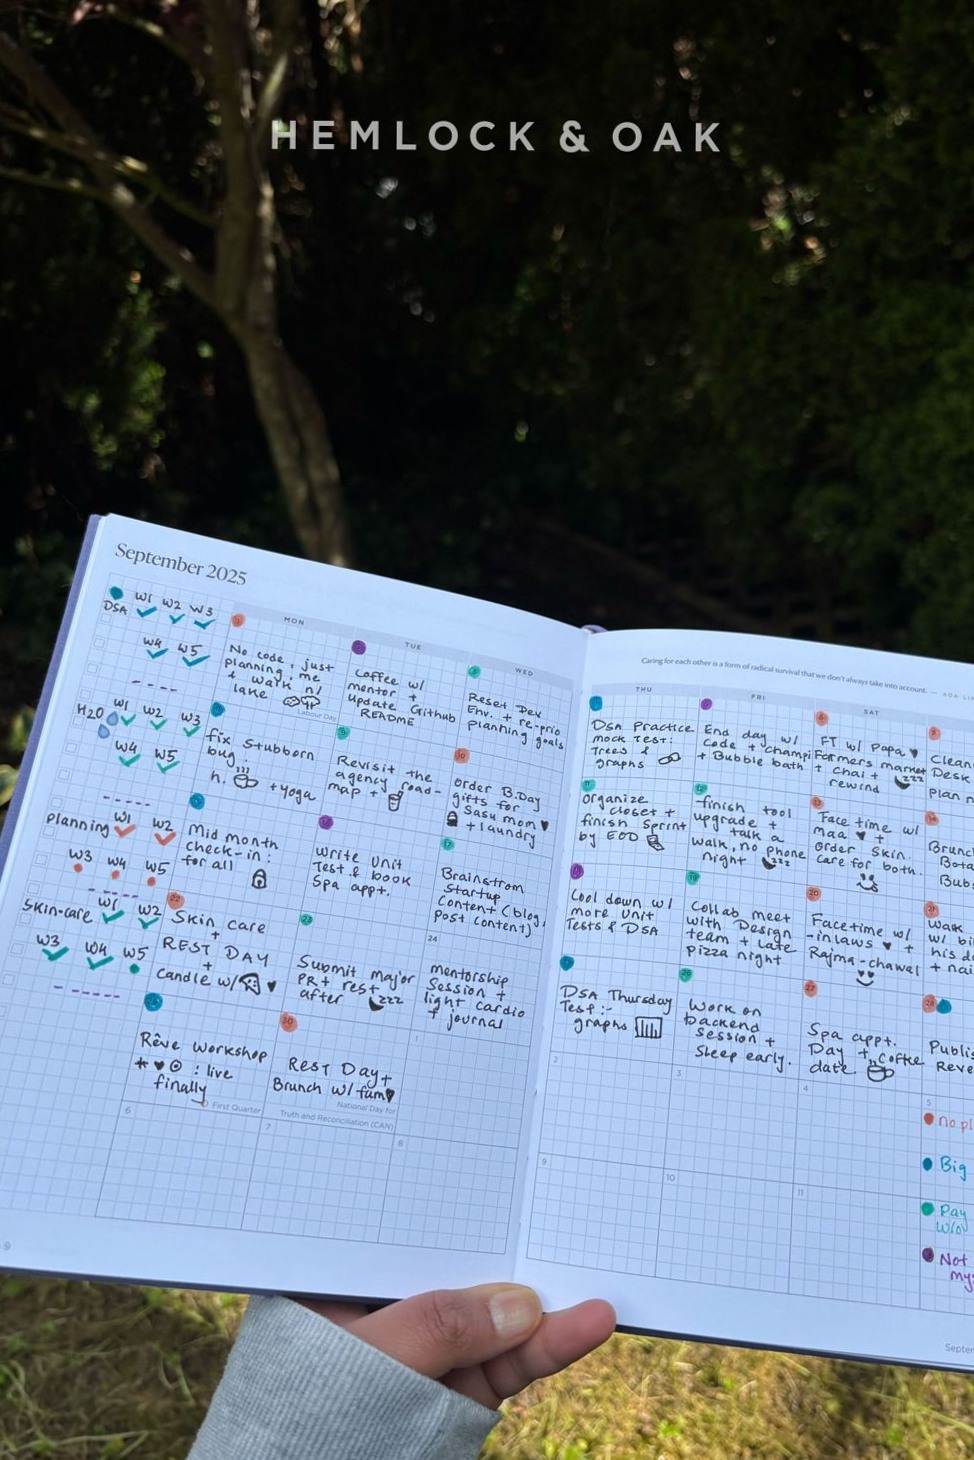 HEMLOCK & OAK
September 2025
DSA W1 W2 W3
W4 W5
H2O W1 W2 W3
W4 W5
Planning W1 W2
W3 W4 W5
Skin-care W1 W2
W3 W4 W5
MON
TUE
WED
No code, just
planning, me
& walk n/
lake
Labour Day
Coffee w/
mentor +
update Github
README
Reset Dev
Env. + re-prio
planning goals
fix stubborn
bug...
h.
+ yoga
9
Revisit the
agency road-
map +
10
order B.Day
gifts for
Sasu mom ♥
+ laundry
Mid month
check-in:
for all
Write Unit
Test & book
Spa appt.
17
Brainstrom
Startup
Content (blog,
post content)
22
Skin care
+
REST DAY
+
Candle w/ ♥
23
Submit major
PR + rest
after zzz
24
mentorship
Session +
light cardio
+ journal
Rêve Workshop
* ♥ : live
finally
First Quarter
30
REST Day +
Brunch w/ fam♥
National Day for
Truth and Reconciliation (CAN)
1
6
7
8
9
Caring for each other is a form of radical survival that we don't always take into account. —
THU
FRI
SAT
DSA Practice
mock Test:
Trees &
graphs
End day w/
Code + champi
+ Bubble bath
6
FT w/ Papa ♥
Farmers market
+ chai +
rewind
zzz
Clean
Desk
plan n
11
organize
closet +
finish Sprint
by EOD
12
finish tool
upgrade +
talk a
walk, no phone
night zzz
13
Face time w/
maa ♥ +
order Skin.
Care for both.
14
Brunc
Bota
Bub
Cool down w/
more Unit
Tests & DSA
19
Collab meet
with Design
team + late
pizza night
20
Facetime w/
-in laws ♥ +
Rajma-chawal
21
Walk
w/ bi
his d
+ nai
DSA Thursday
Test:-
graphs
26
Work on
backend
session +
Sleep early.
27
Spa appt.
Day + coffee
date
28
Publis
Reve
2
3
4
5
9
10
11
No pl
Big
Pay
w/o
Not
my
Septem